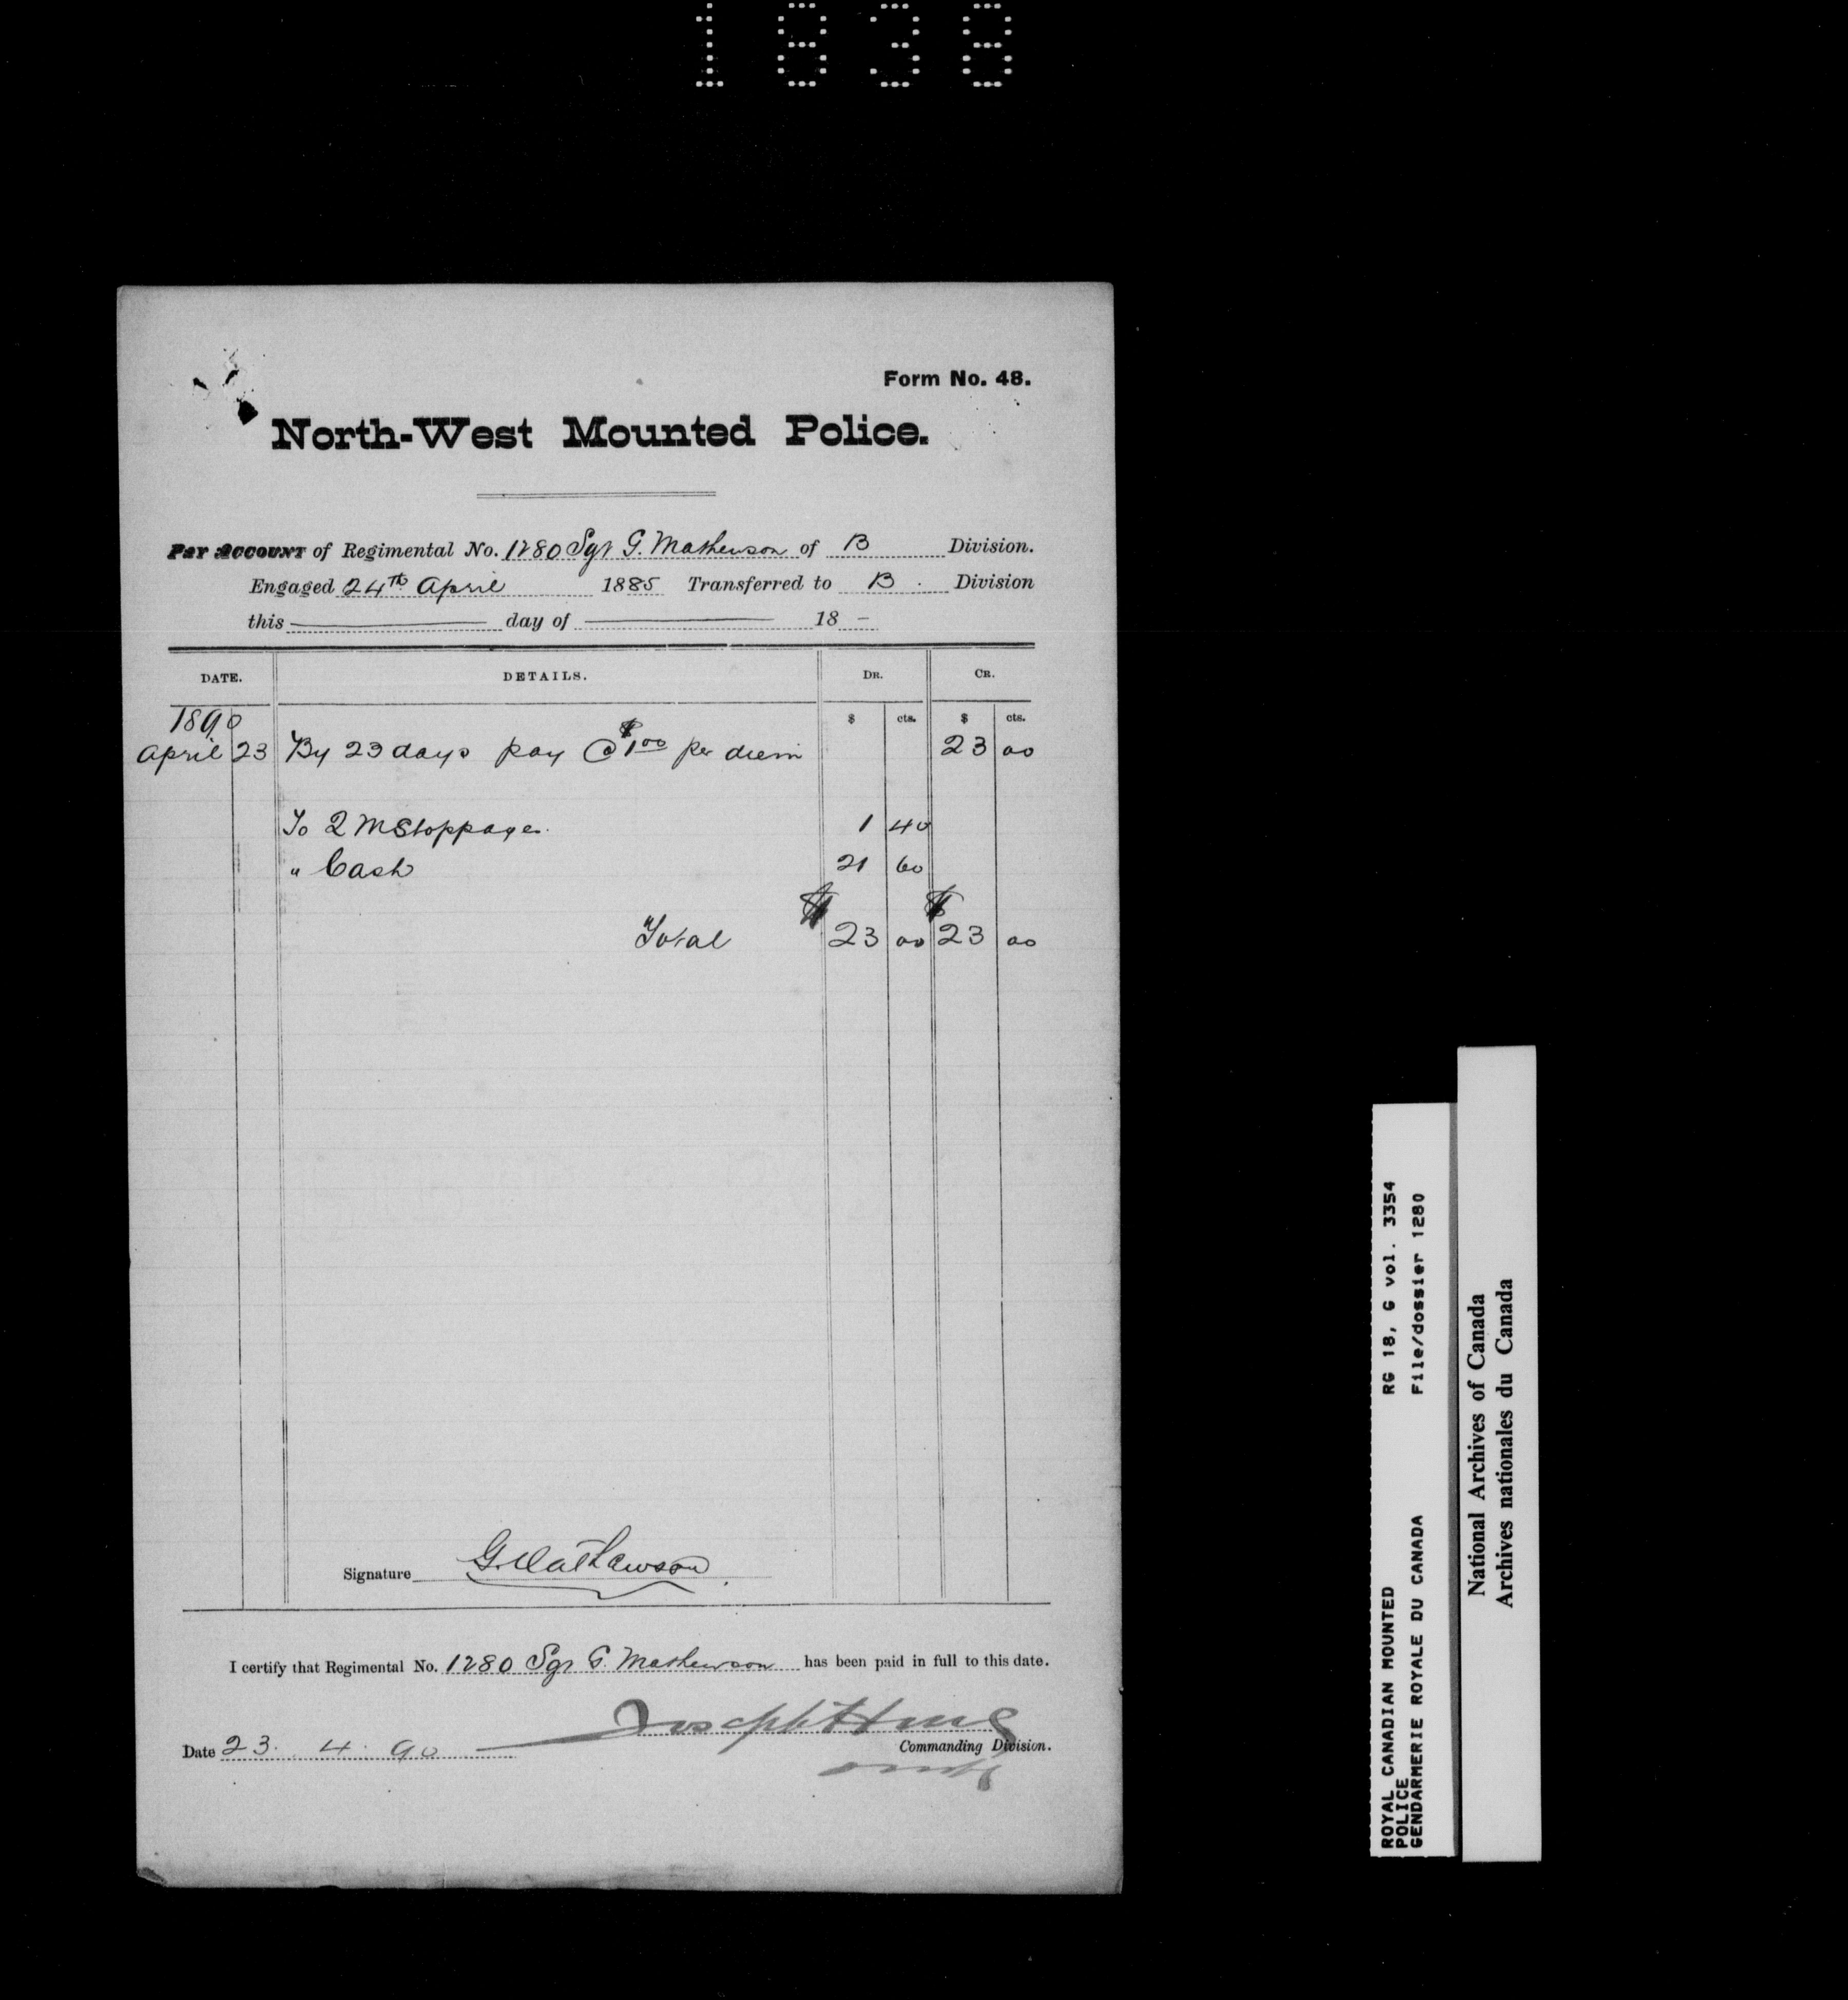 1838
Form No. 48.
North-West Mounted Police.
Pay Account of Regimental No. 1280 Sgt G. Mathewson of B Division.
Engaged 24th April 1885 Transferred to B. Division
this day of 18 -
DATE. DETAILS. DR. CR.
1890 $ cts. $ cts.
April 23 By 23 days pay @ $1.00 per diem 23 00
To Q M Stoppages. 1 40
" Cash 21 60
$ $
Total 23 00 23 00
Signature G. Mathewson
I certify that Regimental No. 1280 Sgt G. Mathewson has been paid in full to this date.
Joseph
Date 23. 4. 90 Commanding Division.
ROYAL CANADIAN MOUNTED RG 18, G vol. 3354
POLICE
GENDARMERIE ROYALE DU CANADA File/dossier 1280
National Archives of Canada
Archives nationales du Canada